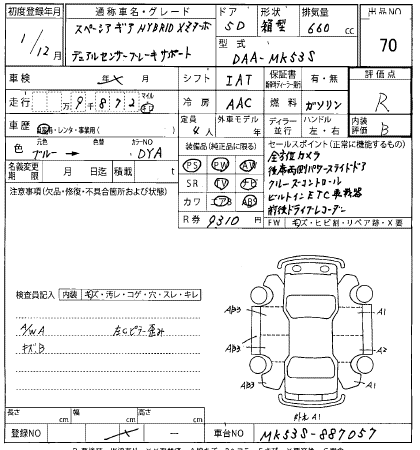 初度登録年月 通称車名・グレード ドア 形状 排気量 出品NO
1/12月 スペーシア ギア HYBRID Xターボ 5D 箱型 660 cc 70
デュアルセンサーブレーキサポート 型式 DAA-MK53S
車検 年 月 シフト IAT 保証書 有・無 評価点
走行 万9千872 マイル 冷房 AAC 燃料 ガソリン R
車歴 自家用・レンタ・事業用( ) 定員 4人 外車モデル 年 ディーラー 並行 ハンドル 左・右 内装評価 B
色 元色 ブルー → 色替 カラーNO DYA
装備品(純正品に限る) セールスポイント(正常に機能するもの)
名義変更期限 月 日迄 積載 t
PS PW AW
SR TV ナビ
カワ エアB ABS
R券 9310円
全方位カメラ
後席両側パワースライドドア
クルーズコントロール
ビルトインETC車載器
前後ドライブレコーダー
注意事項(欠品・修復・不具合箇所および状態)
FW キズ・ヒビ割・リペア跡・X要
検査員記入 内装 キズ・汚レ・コゲ・穴・スレ・キレ
A/W A 左Cピラー歪み
キズB
AB3 A1
AB3 A2
AB3 A1
外光A1
長さ cm 幅 cm 高さ cm
登録NO 車台NO MK53S-887057